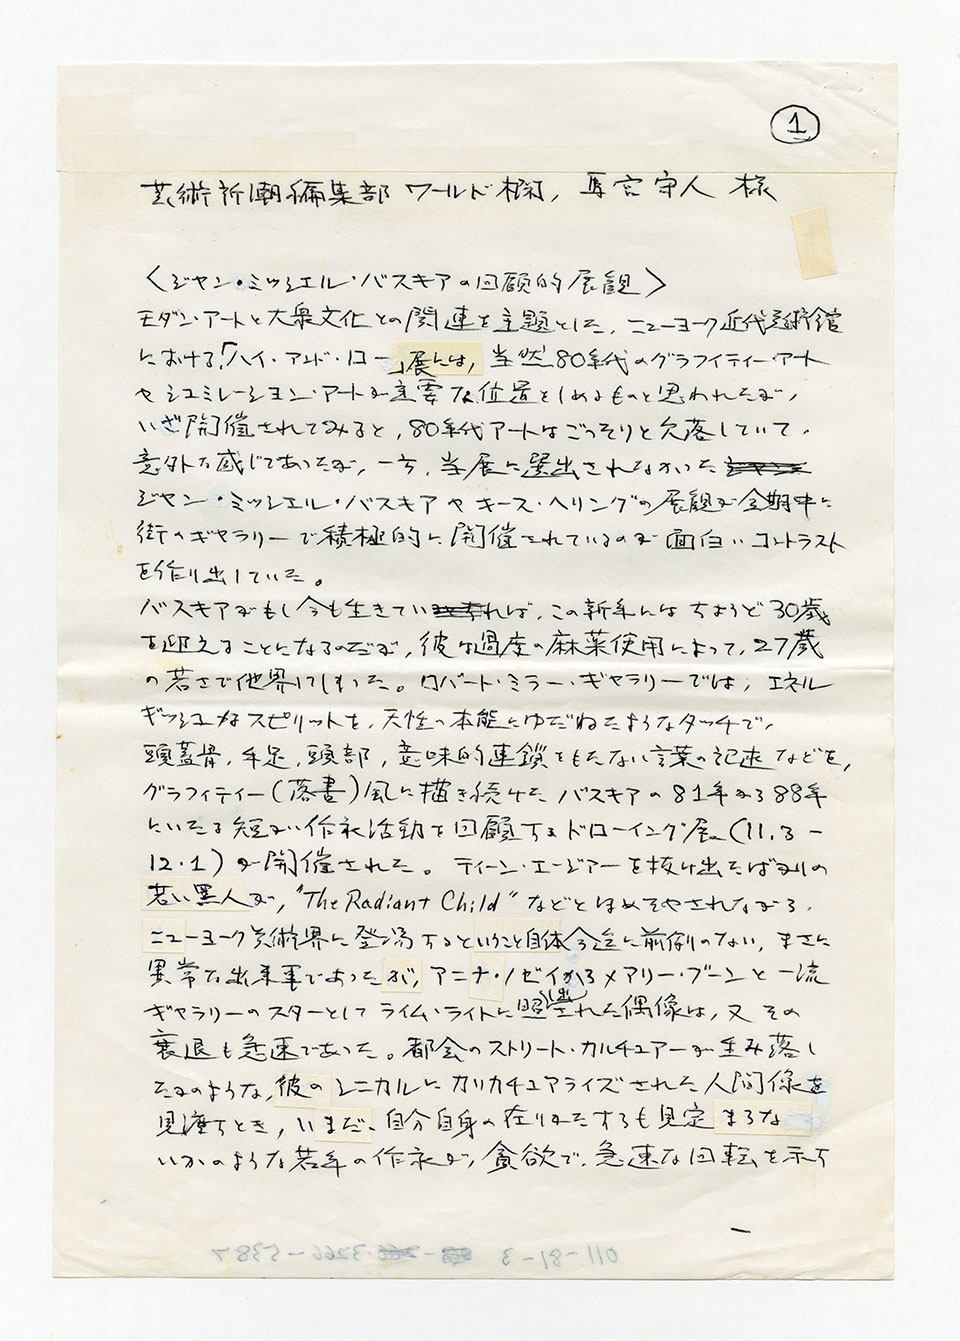 1
芸術新潮編集部 ワールド欄, 馬宮守人 様
〈ジャン・ミッシェル・バスキアの回顧的展観〉
モダン・アートと大衆文化との関連を主題とした、ニューヨーク近代美術館
における「ハイ・アンド・ロー」展には, 当然80年代のグラフィティー・アート
やシュミレーション・アートが主要な位置をしめるものと思われたが、
いざ開催されてみると, 80年代アートはごっそりと欠落していて、
意外な感じであったが, 一方, 当展に選出されなかった
ジャン・ミッシェル・バスキアやキース・ヘリングの展観が会期中に
街のギャラリーで積極的に開催されているのが面白いコントラスト
を作り出していた。
バスキアがもし今も生きていれば, この新年にはちょうど30歳
を迎えることになるのだが, 彼は過度の麻薬使用によって, 27歳
の若さで他界してしまった。ロバート・ミラー・ギャラリーでは, エネル
ギッシュなスピリットを, 天性の本能にゆだねたようなタッチで,
頭蓋骨, 手足, 頭部, 意味的連鎖をもたない言葉の記述などを,
グラフィティー(落書)風に描き続けたバスキアの81年から88年
にいたる短かい作家活動を回顧するドローイング展(11.3-
12.1)が開催された。ティーン・エージアーを抜け出たばかりの
若い黒人が, "The Radiant Child"などとほめそやされながら、
ニューヨーク美術界に登場するということ自体今迄に前例のない, まさに
異常な出来事であったが, アニナ・ノゼイからメアリー・ブーンと一流
ギャラリーのスターとしてライム・ライトに照し出された偶像は, 又その
衰退も急速であった。都会のストリート・カルチュアーが生み落し
たかのような, 彼のシニカルにカリカチュアライズされた人間像を
見渡すとき, いまだ、自分自身の在りかたすらも見定まらな
いかのような若年の作家が, 貪欲で, 急速な回転を示す
011-81-3 3266-5387